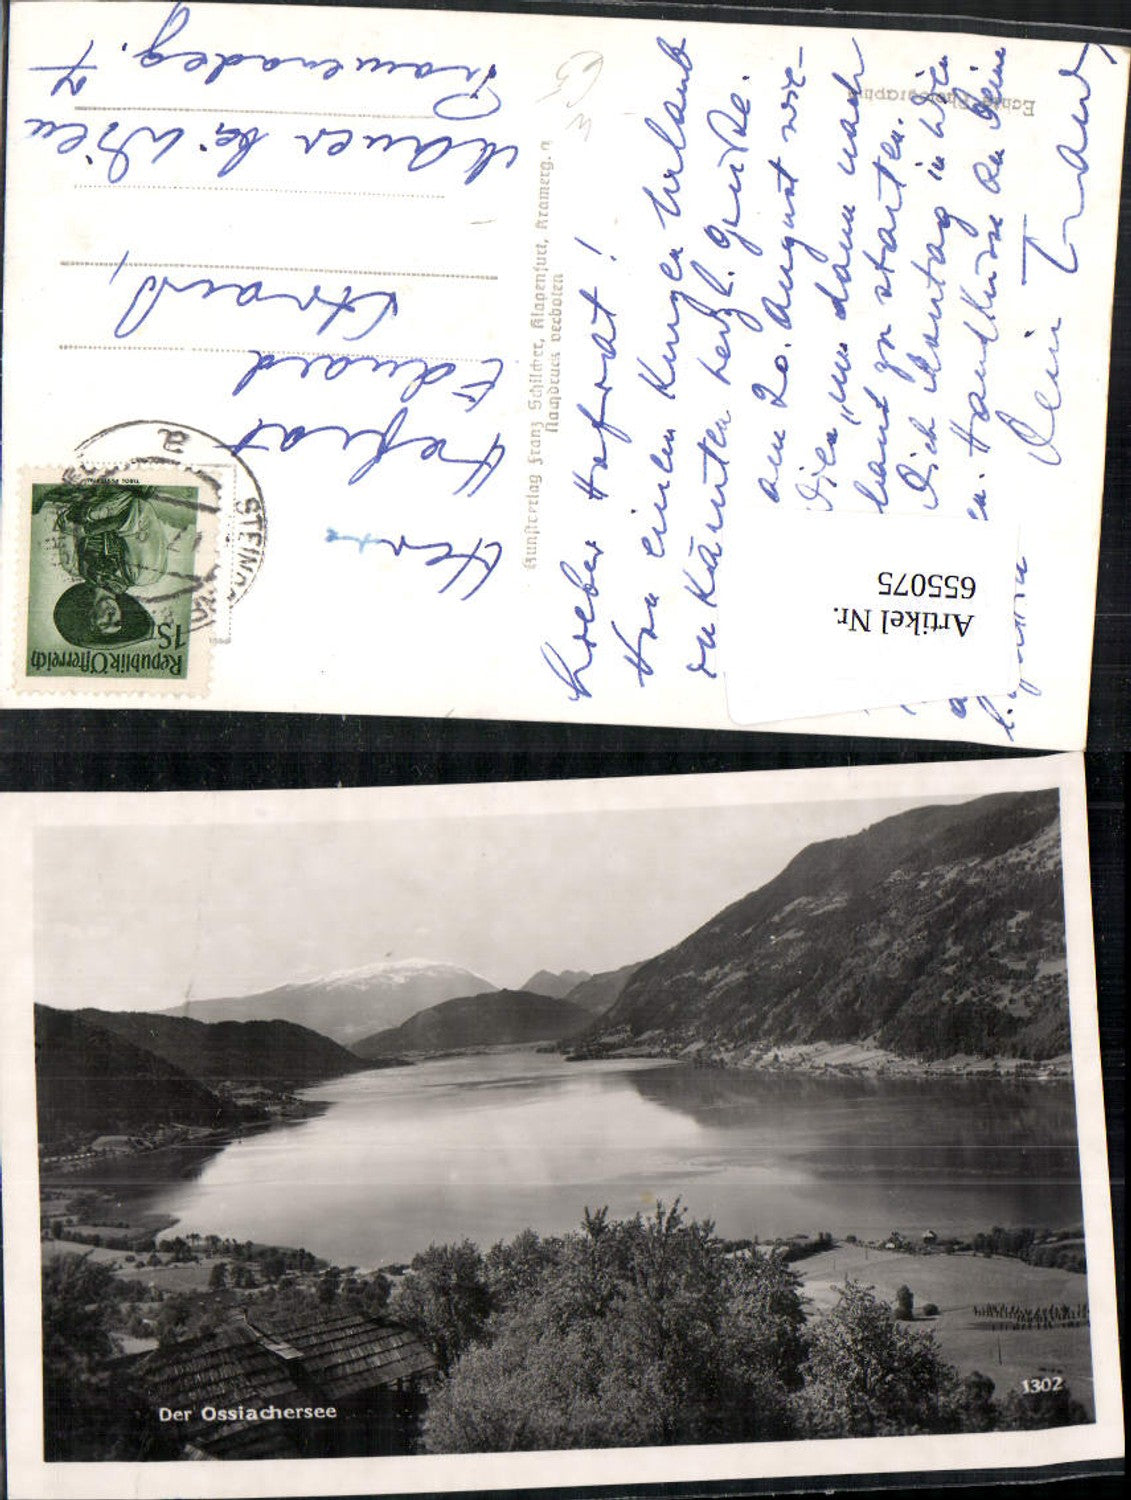 Echte Photographie
Lieber Hofrat!
Von einem kurzen Urlaub
in Kärnten herzl. Grüße.
am 20. August wie-
Wien, um dann nach
land zu starten.
Dich Montag in Wien
Handküsse an Deine
Dein Traud
Kunstverlag Franz Schilcher, Klagenfurt, Kramerg. 7
Nachdruck verboten
Herrn
Hofrat
Eduard
Strand,
Mauer bei Wien
Promenadeg. 7
STEINDORF
a
1S
Republik Österreich
Artikel Nr.
655075
Der Ossiachersee
1302